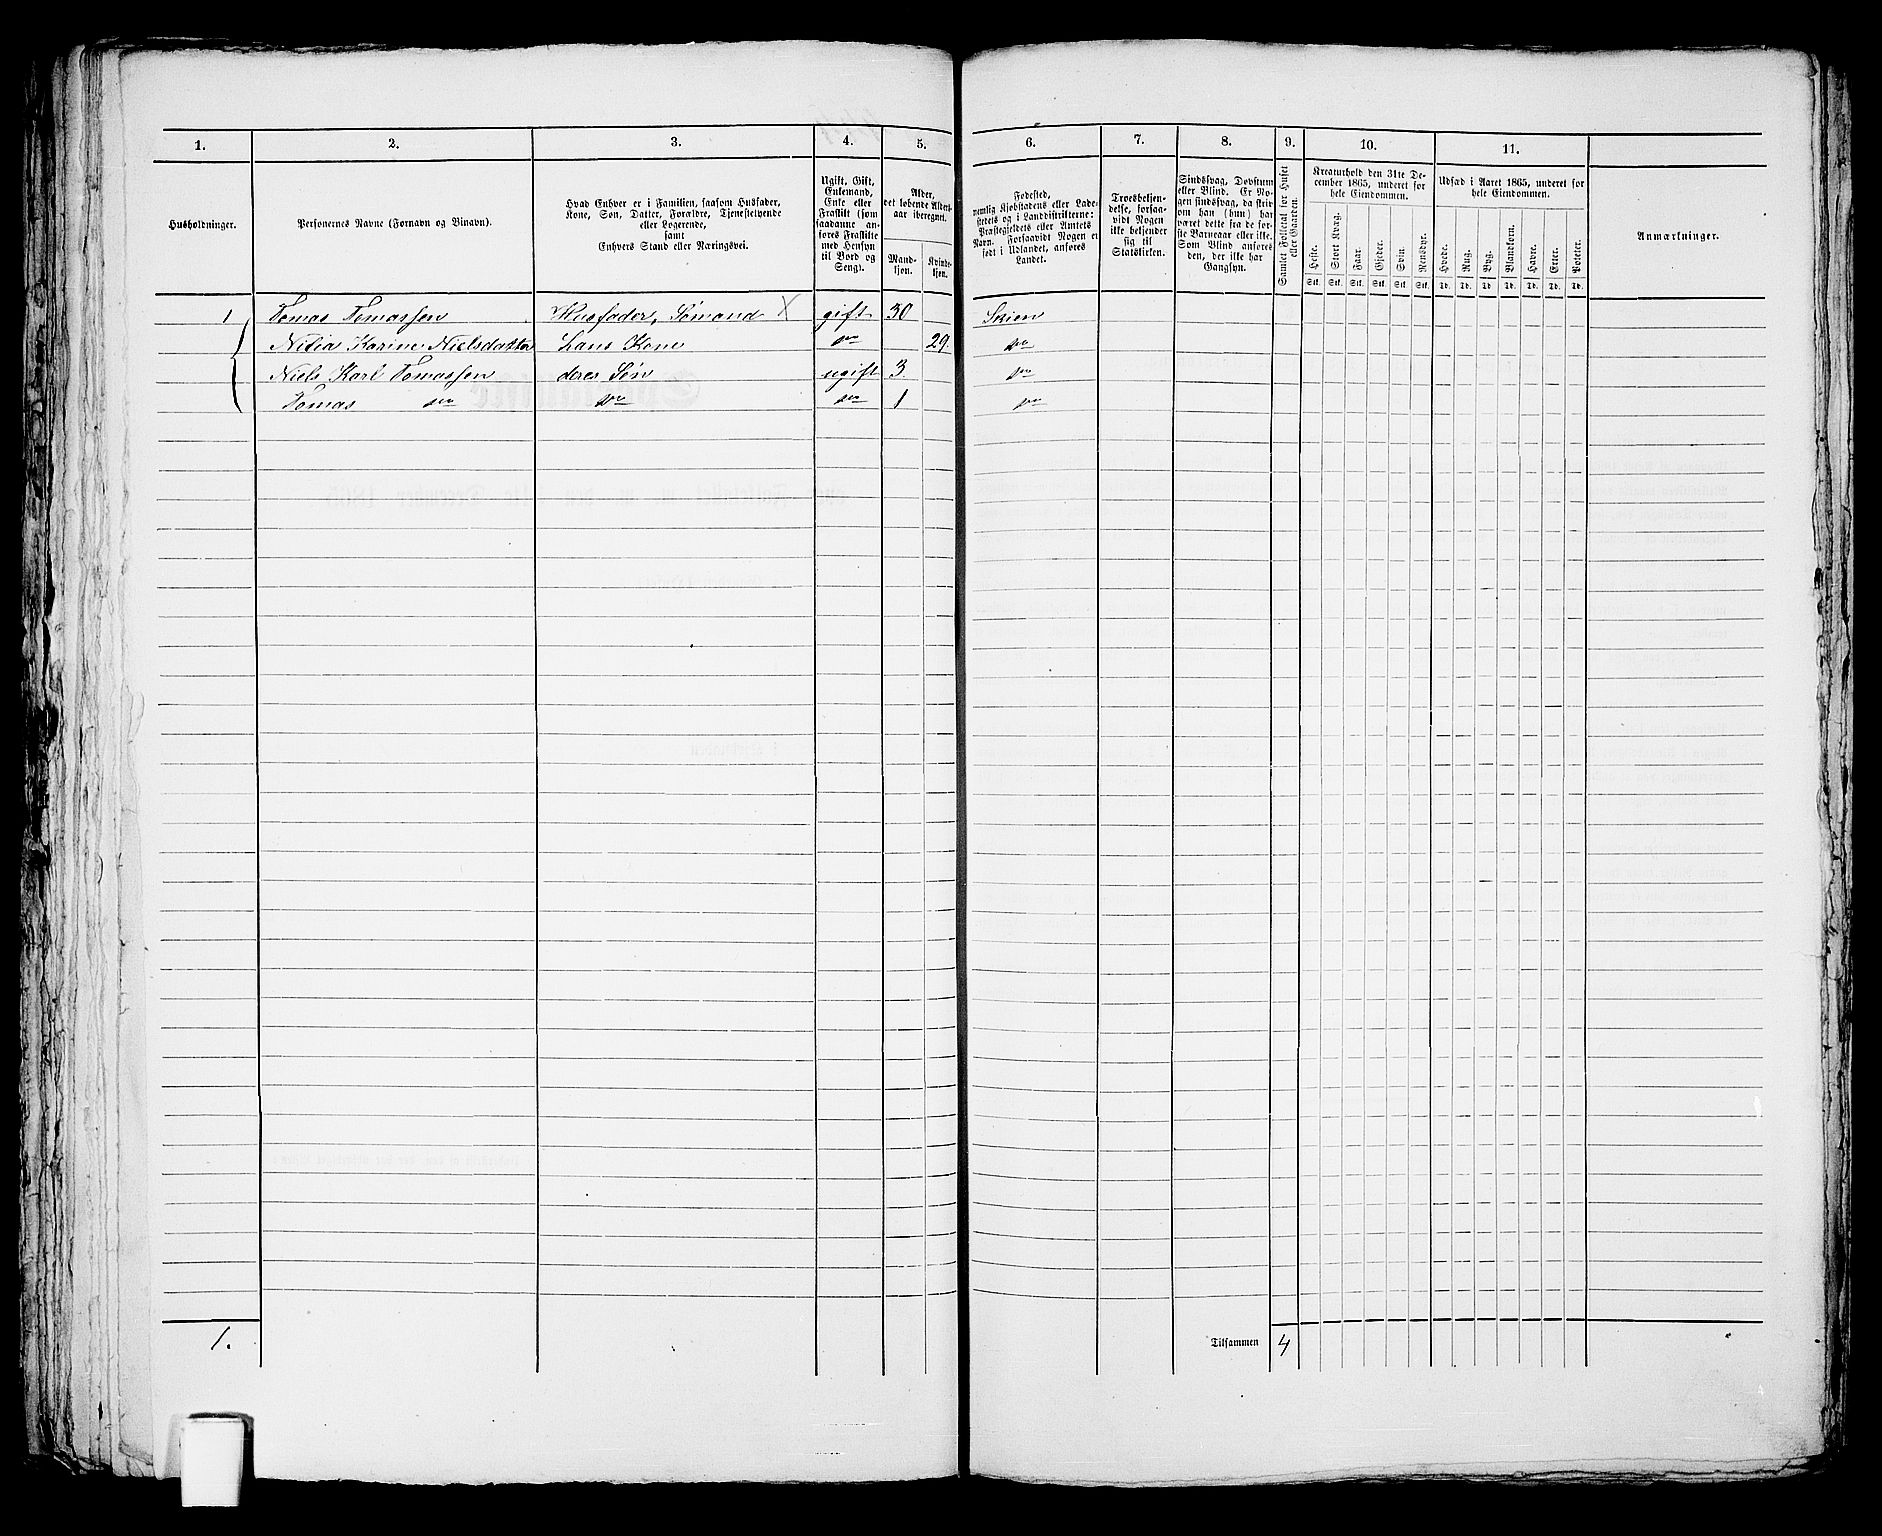 1. 2. 3. 4. 5. 6. 7. 8. 9. 10. 11.
Husholdninger.
Personernes Navne (Fornavn og Binavn).
Hvad Enhver er i Familien, saasom Husfader,
Kone, Søn, Datter, Forældre, Tjenestetyende
eller Logerende,
samt
Enhvers Stand eller Næringsvei.
Ugift, Gift,
Enkemand,
Enke eller
Fraskilt (som
saadanne an-
føres Fraskilte
med Hensyn
til Bord og
Seng).
Alder,
det løbende Alders-
aar iberegnet.
Mand-
kjøn.
Kvinde-
kjøn.
Fødested,
nemlig Kjøbstadens eller Lade-
stedets og i Landdistrikterne:
Præstegjeldets eller Amtets
Navn. Forsaavidt Nogen er
født i Udlandet, anføres
Landet.
Troesbekjen-
delse, forsaa-
vidt Nogen
ikke bekjender
sig til
Statskirken.
Sindssvag, Døvstum
eller Blind. Er No-
gen sindssvag, da skriv
om han (hun) har
været dette fra de før-
ste Barneaar eller ikke.
Som Blind anføres
den, der ikke har
Gangsyn.
Samlet Folketal for Huset
eller Gaarden.
Kreaturhold den 31te De-
cember 1865, underet for
hele Eiendommen.
Heste. Stort Kvæg. Faar. Gjeder. Svin. Rensdyr.
Stk. Stk. Stk. Stk. Stk. Stk.
Udsæd i Aaret 1865, underet for
hele Eiendommen.
Hvede. Rug. Byg. Blandkorn. Havre. Erter. Poteter.
Td. Td. Td. Td. Td. Td. Td.
Anmærkninger.
1 Tomas Tomassen Husfader, Sømand X gift 30 Skien
Karine Nielsdatter Hans Kone do 29. do
Niels Karl Tomassen deres Søn ugift 3. do
Tomas do do do 1 do
1. Tilsammen 4